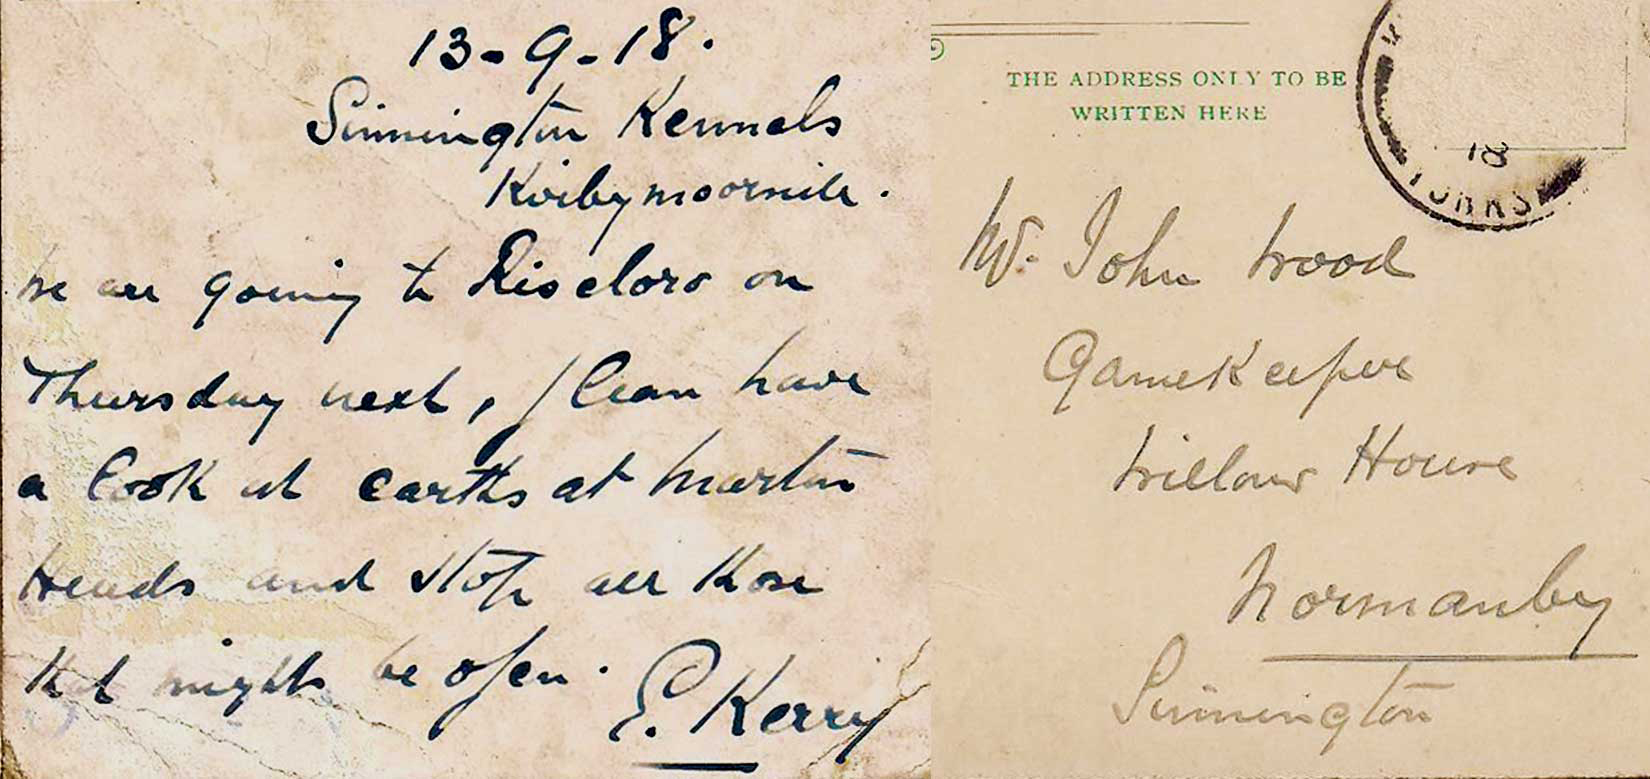 13-9-18.
Sinnington Kennels
Kirbymoorside.
We are going to Riseboro on
Thursday next, please have
a look at earths at Marton
Heads and stop all those
that might be open.
E. Kerry
THE ADDRESS ONLY TO BE
WRITTEN HERE
18
YORKS
Mr. John Wood
Gamekeeper
Willow House
Normanby
Sinnington